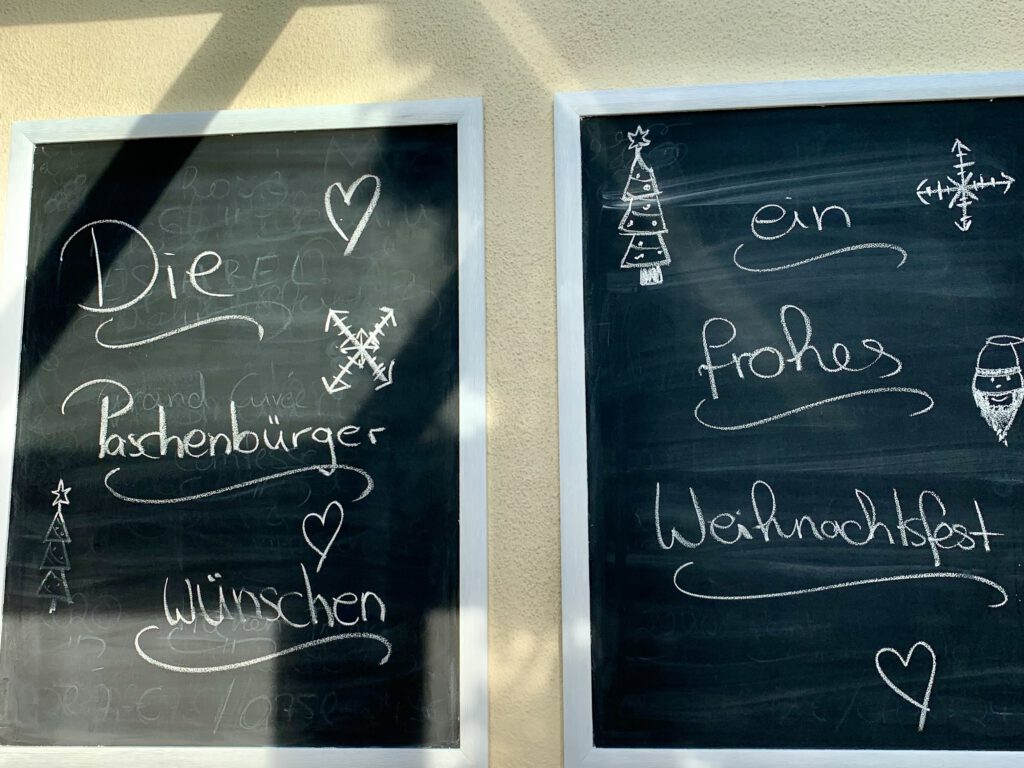 Die
Paschenbürger
wünschen
ein
frohes
Weihnachtsfest